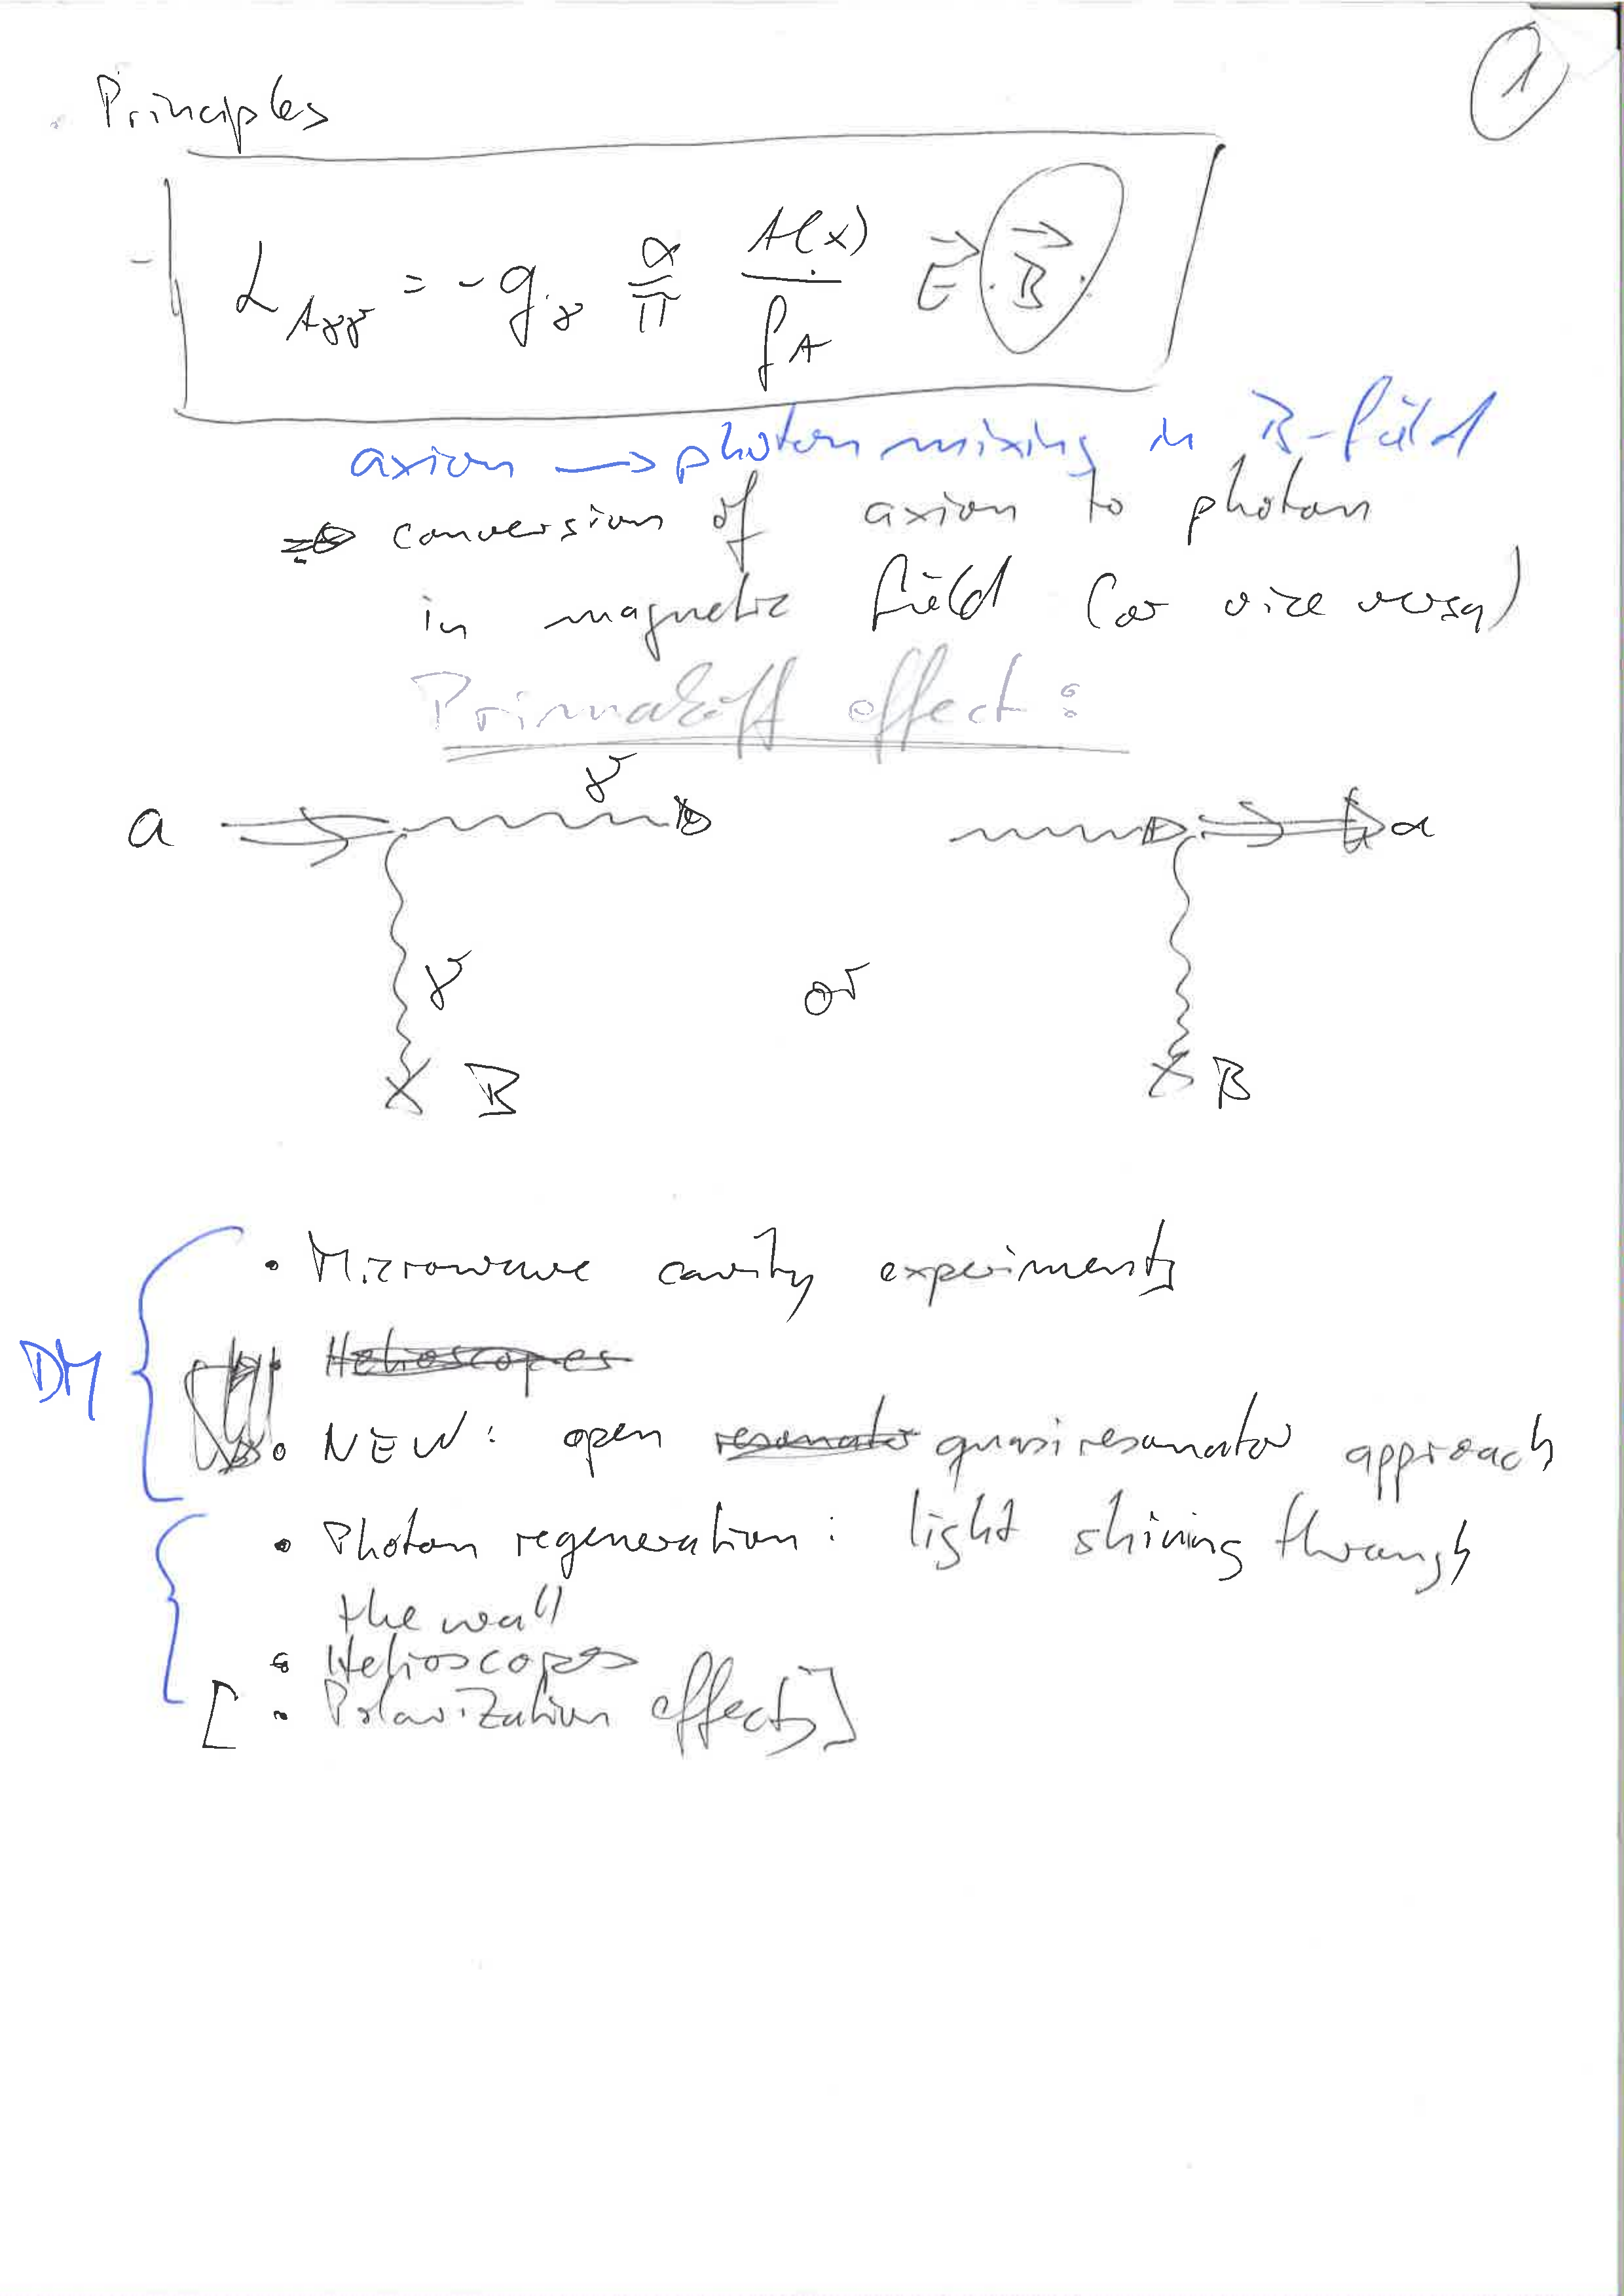 1
Principles
L_Aγγ = - g_γ α/π A(x)/f_A E⃗ · B⃗
axion → photon mixing in B-field
⇒ conversion of axion to photon
in magnetic field (or vice versa)
Primakoff effect:
a γ a
γ or
B B
• Microwave cavity experiments
DM
• Helioscopes
• NEW: open resonator quasiresonator approach
• Photon regeneration: light shining through
the wall
• Helioscopes
[ • Polarization effects ]